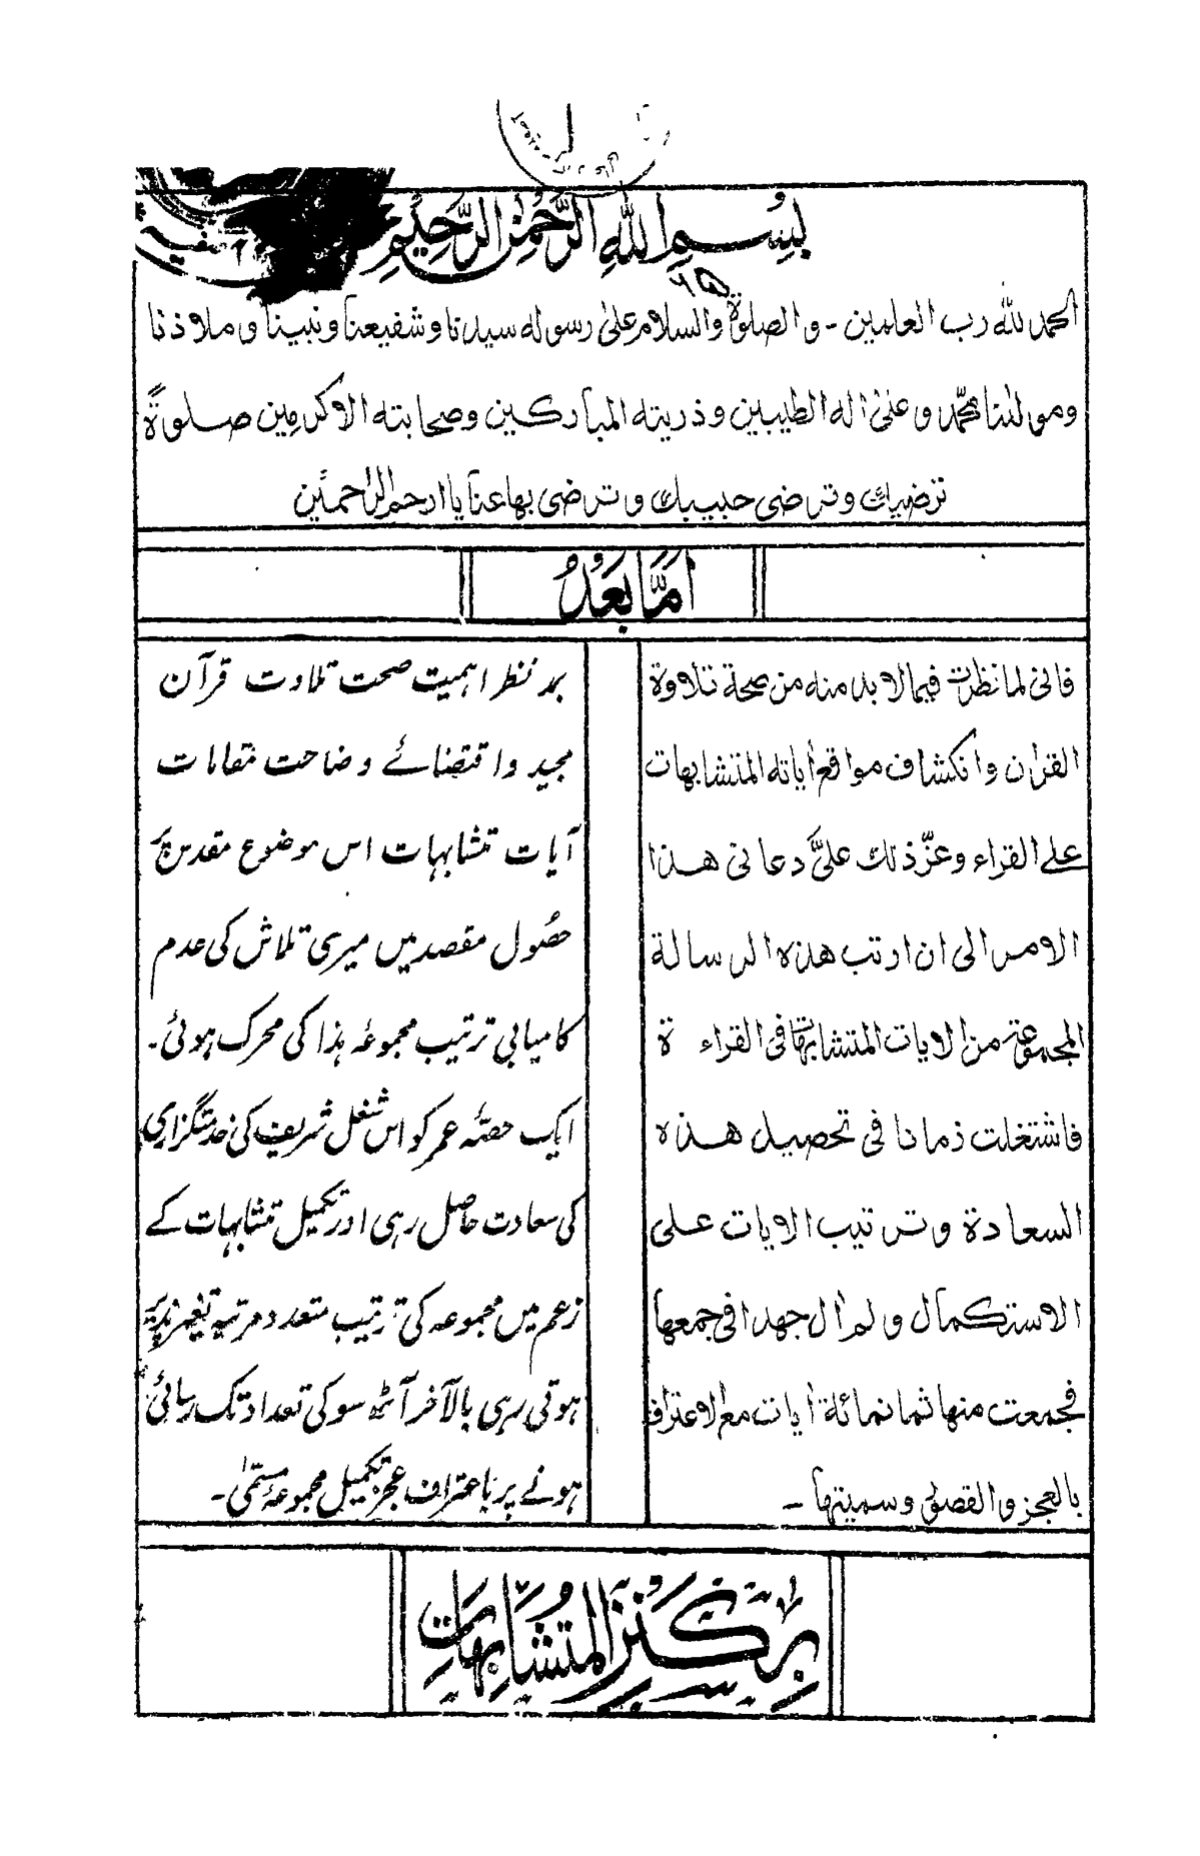 بِسْمِ اللهِ الرَّحْمٰنِ الرَّحِيْمِ
الحمد لله رب العلمين - والصلوة والسلام على رسوله سيدنا وشفيعنا ونبينا وملاذنا
ومولٰنا محمّد وعلىٰ اله الطيبين وذريته المباركين وصحابته الاكرمين صلوةً
ترضيك وترضى حبيبك وترضى بها عنا يا ارحم الراحمين
اَمَّا بَعْدُ
فانى لما نظرت فيما لا بد منه من صحة تلاوة
القران وانكشاف مواقع اياته المتشابهات
على القراء وعزّ ذلك علىَّ دعانى هذا
الامر الى ان ارتب هذه الرسالة
المجموعة من الايات المتشابهة فى القراءة
فاشتغلت زمانا فى تحصيل هذه
السعادة وترتيب الايات على
الاستكمال ولم ال جهدا فى جمعها
فجمعت منها ثمانمائة ايات مع الاعتراف
بالعجز والقصور وسميتها -
بمد نظر اہمیت صحت تلاوت قرآن
مجید و اقتضائے وضاحت مقامات
آیات متشابہات اس موضوع مقدس پر
حصُول مقصد میں میری تلاش کی عدم
کامیابی ترتیب مجموعہٗ ہذا کی محرک ہوئی۔
ایک حصّہٗ عمر کو اس شغل شریف کی خدمتگزاری
کی سعادت حاصل رہی اور تکمیل متشابہات کے
زعم میں مجموعہ کی ترتیب متعدد مرتبہ تغیر پذیر
ہوتی رہی بالآخر آٹھ سو کی تعداد تک رسائی
ہونے پر باعتراف عجز تکمیل مجموعہٗ مسمّٰی۔
بركنز المتشابهات